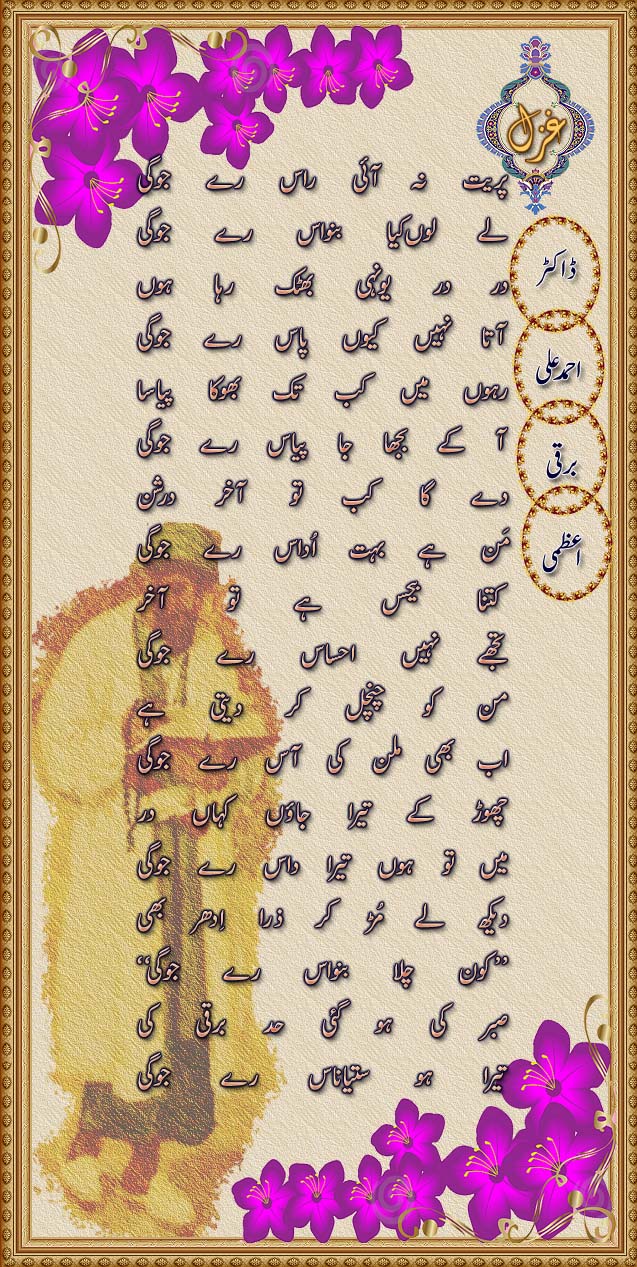 غزل
ڈاکٹر
احمد علی
برقی
اعظمی
پریت نہ آئی راس رے جوگی
لے لوں کیا بنواس رے جوگی
در در یونہی بھٹک رہا ہوں
آتا نہیں کیوں پاس رے جوگی
رہوں میں کب تک بھوکا پیاسا
آ کے بجھا جا پیاس رے جوگی
دے گا کب تو آخر درشن
مَن ہے بہت اُداس رے جوگی
کتنا بیحس ہے تو آخر
تجھے نہیں احساس رے جوگی
من کو چنچل کر دیتی ہے
اب بھی ملن کی آس رے جوگی
چھوڑ کے تیرا جاؤں کہاں در
میں تو ہوں تیرا داس رے جوگی
دیکھ لے مُڑ کر ذرا اِدھر بھی
’’کون چلا بنواس رے جوگی‘‘
صبر کی ہو گئی حد برقی کی
تیرا ہو ستیاناس رے جوگی